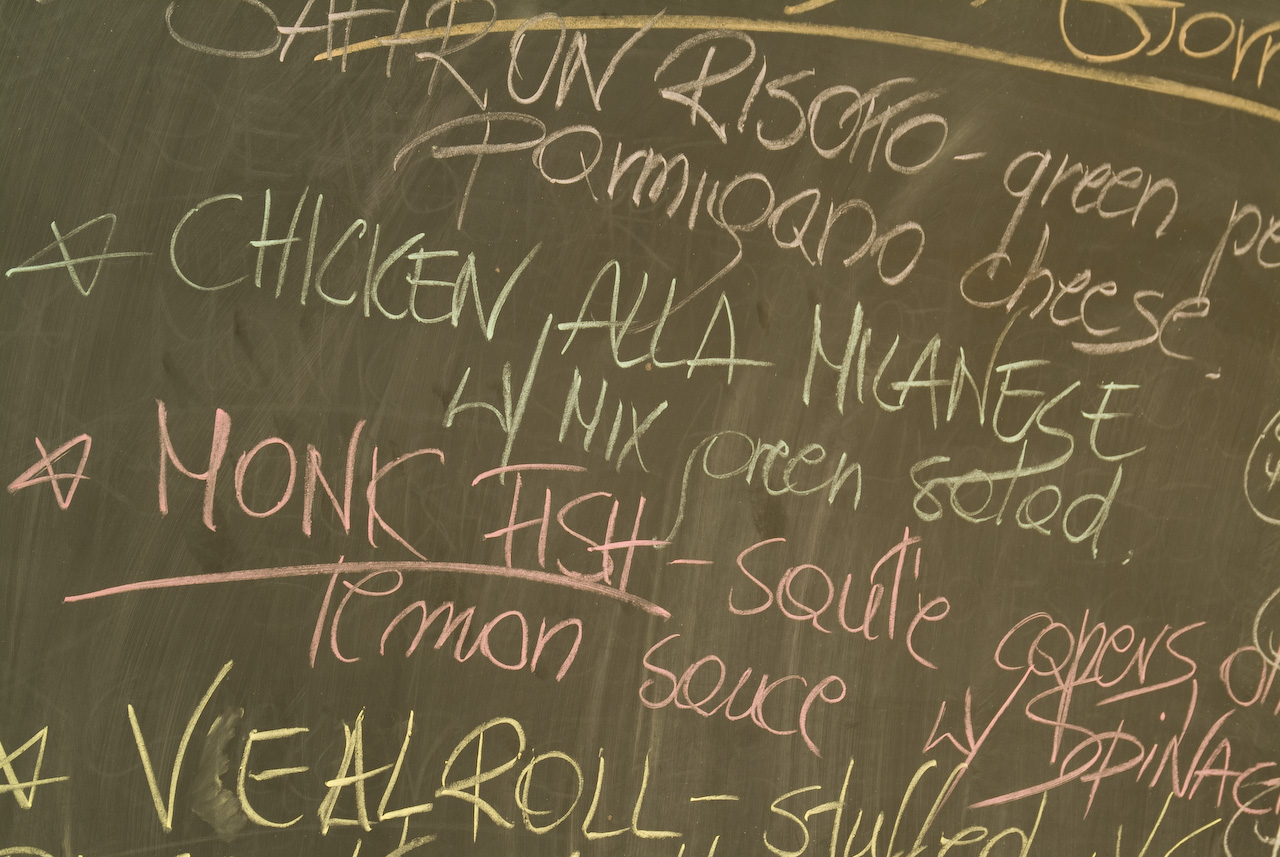 SAFFRON RISOTTO - green
Parmigano cheese
CHICKEN ALLA MILANESE
w/ MIX green salad.
MONK FISH - sautè capers
lemon sauce w/ SPINAC
VEAL ROLL - stuffed